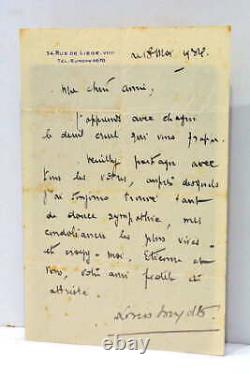 54 RUE DE LIÈGE. VIIIe
TEL. EUROPE
le 18 Mai 1938.
Ma chère amie,
J'apprends avec chagrin
le deuil cruel qui vous frappe.
Veuillez partager avec
tous les vôtres, auprès desquels
j'ai toujours trouvé tant
de douce sympathie, mes
condoléances les plus vives
et croyez-moi, Etienne et
vous, votre ami fidèle et
attristé.